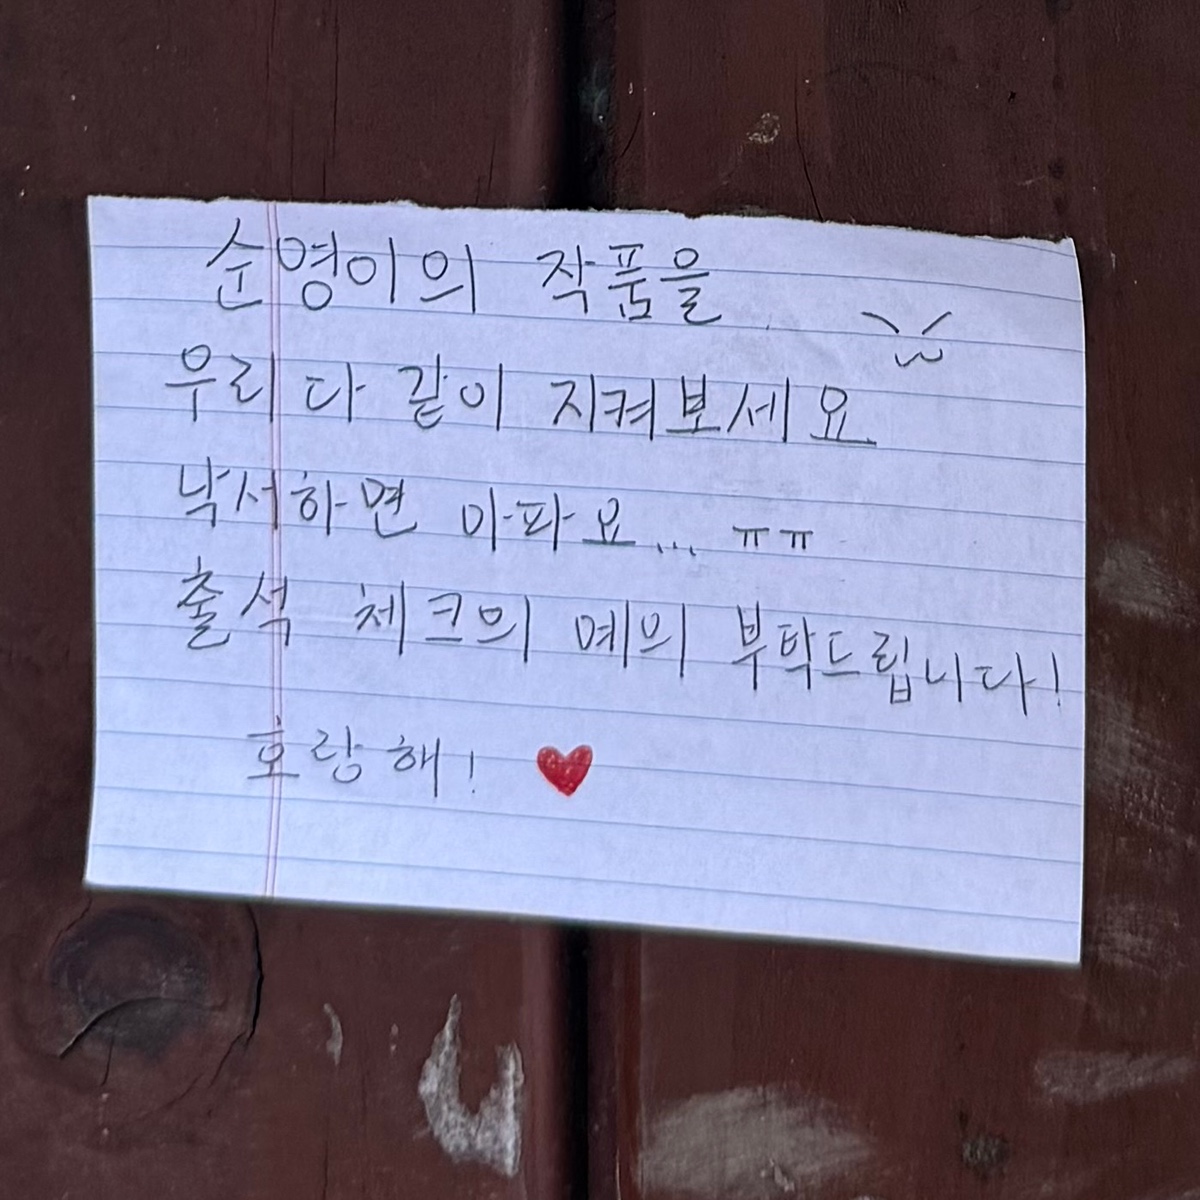 순영이의 작품을
우리 다 같이 지켜보세요
낙서하면 아파요... ㅠㅠ
출석 체크의 예의 부탁드립니다!
호랑해! ❤